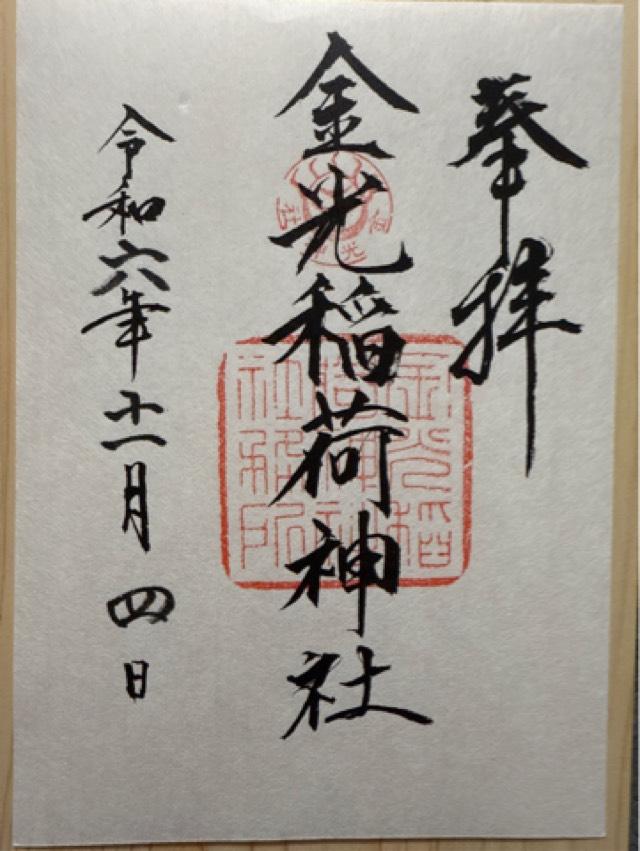 奉拝
金光稲荷神社
令和六年十一月四日
金光稲
荷神社
社務所